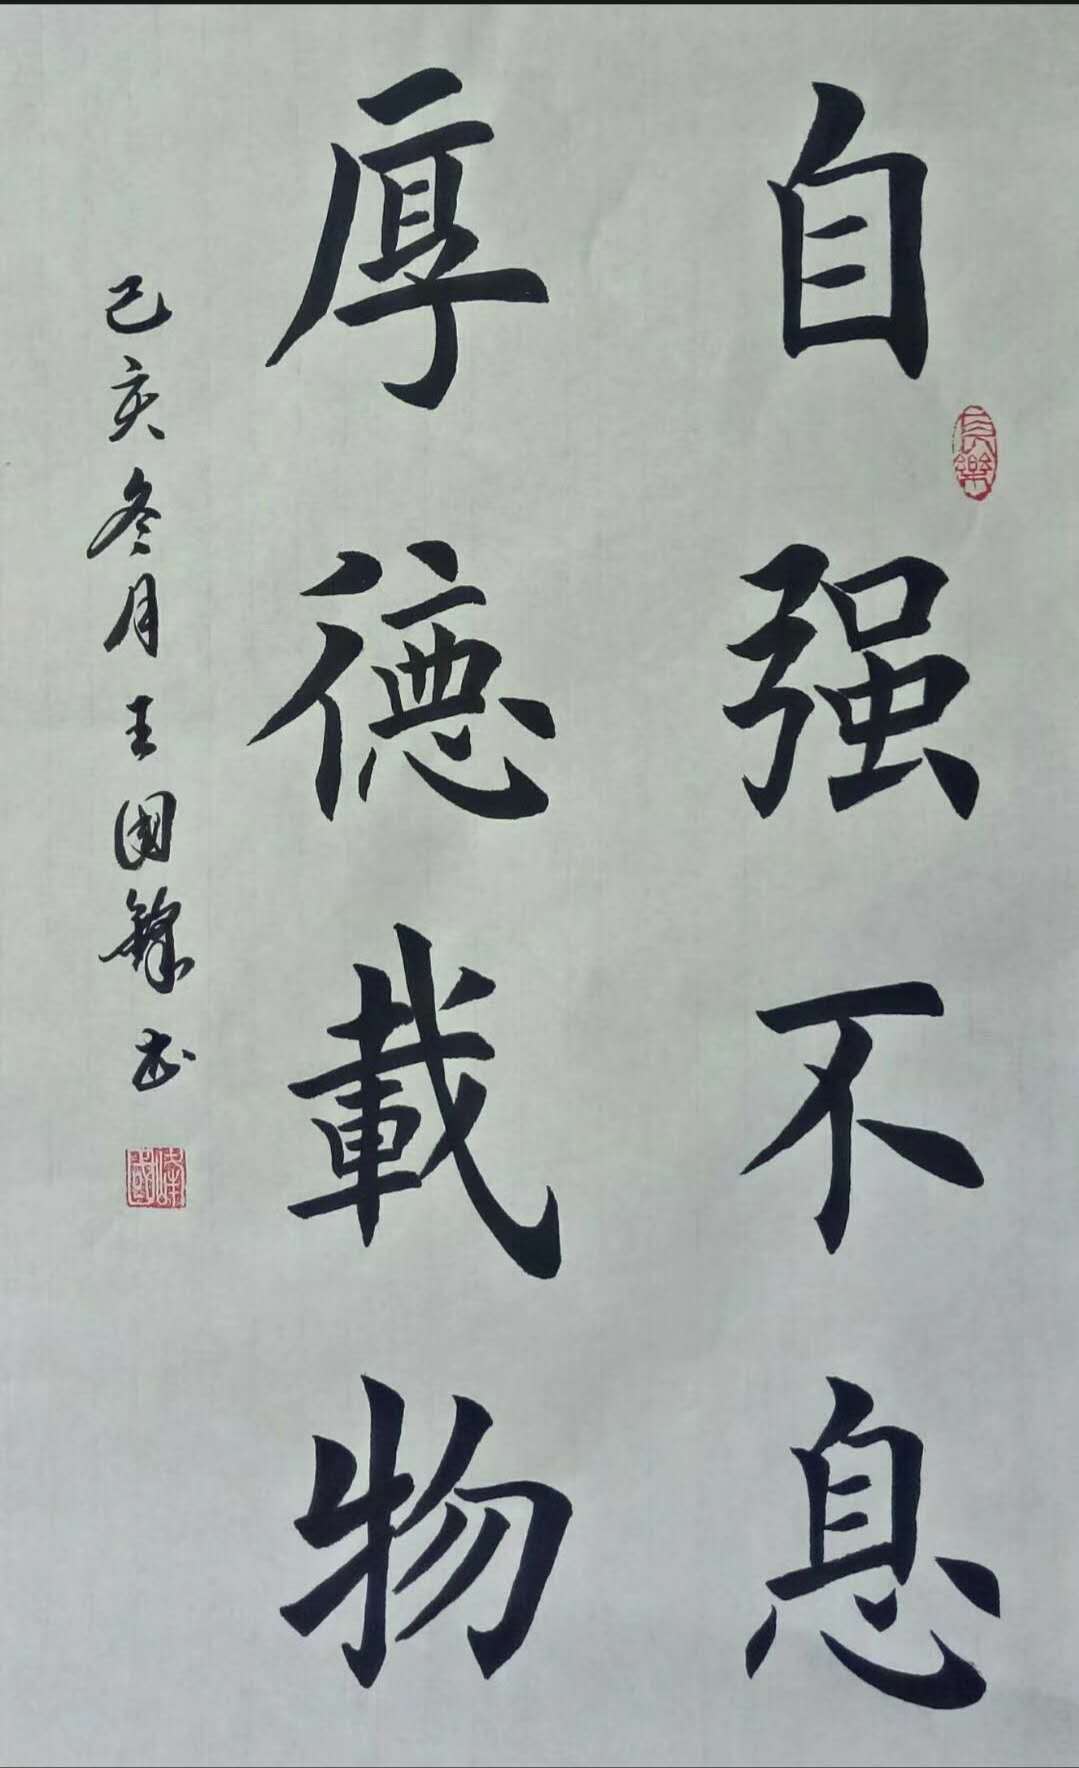 自强不息
厚德載物
己亥冬月王國鋒书
長樂